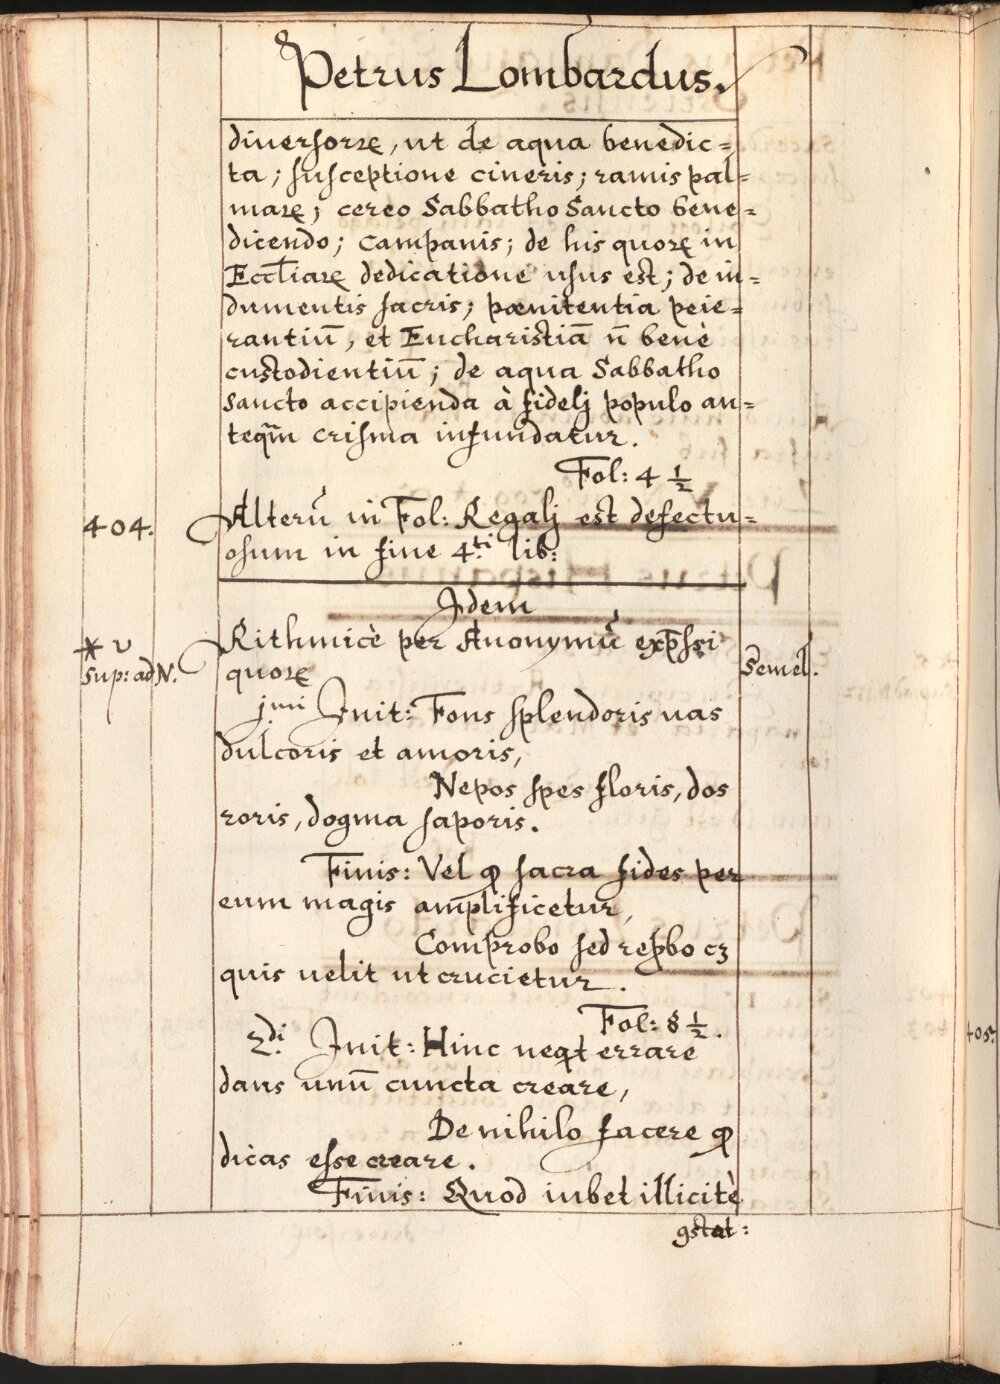 Petrus Lombardus.
diuersorꝝ, ut de aqua benedic=
ta; susceptione cineris; ramis pal=
marꝝ; cereo Sabbatho Sancto bene=
dicendo; Campanis; de his quorꝝ in
Eccl̄iarꝝ dedicatione usus est; de in=
dumentis sacris; pœnitentia peie=
rantiū, et Eucharistiā n̄ benè
custodientiū; de aqua Sabbatho
Sancto accipienda à fidelj populo an=
teqm̄ crisma infundatur.
Fol: 4 ½
404. Alterū in Fol: Regalj est defectu=
osum in fine 4.ti lib:
Jdem
* v Rithmicè per Anonymū exp̄ssi
Sup: ad N. quorꝝ Semel.
j.mi Jnit: Fons splendoris uas
dulcoris et amoris,
Nepos spes floris, dos
roris, dogma saporis.
Finis: Vel ꝙ sacra fides per
eum magis amplificetur,
Comprobo sed rep̱bo cꝫ
quis uelit ut crucietur.
Fol: 8 ½.
2.di Jnit: Hinc neqt errare
dans unū cuncta creare,
De nihilo facere ꝙ
dicas esse creare.
Finis: Quod iubet illicitè
9stat:
405.